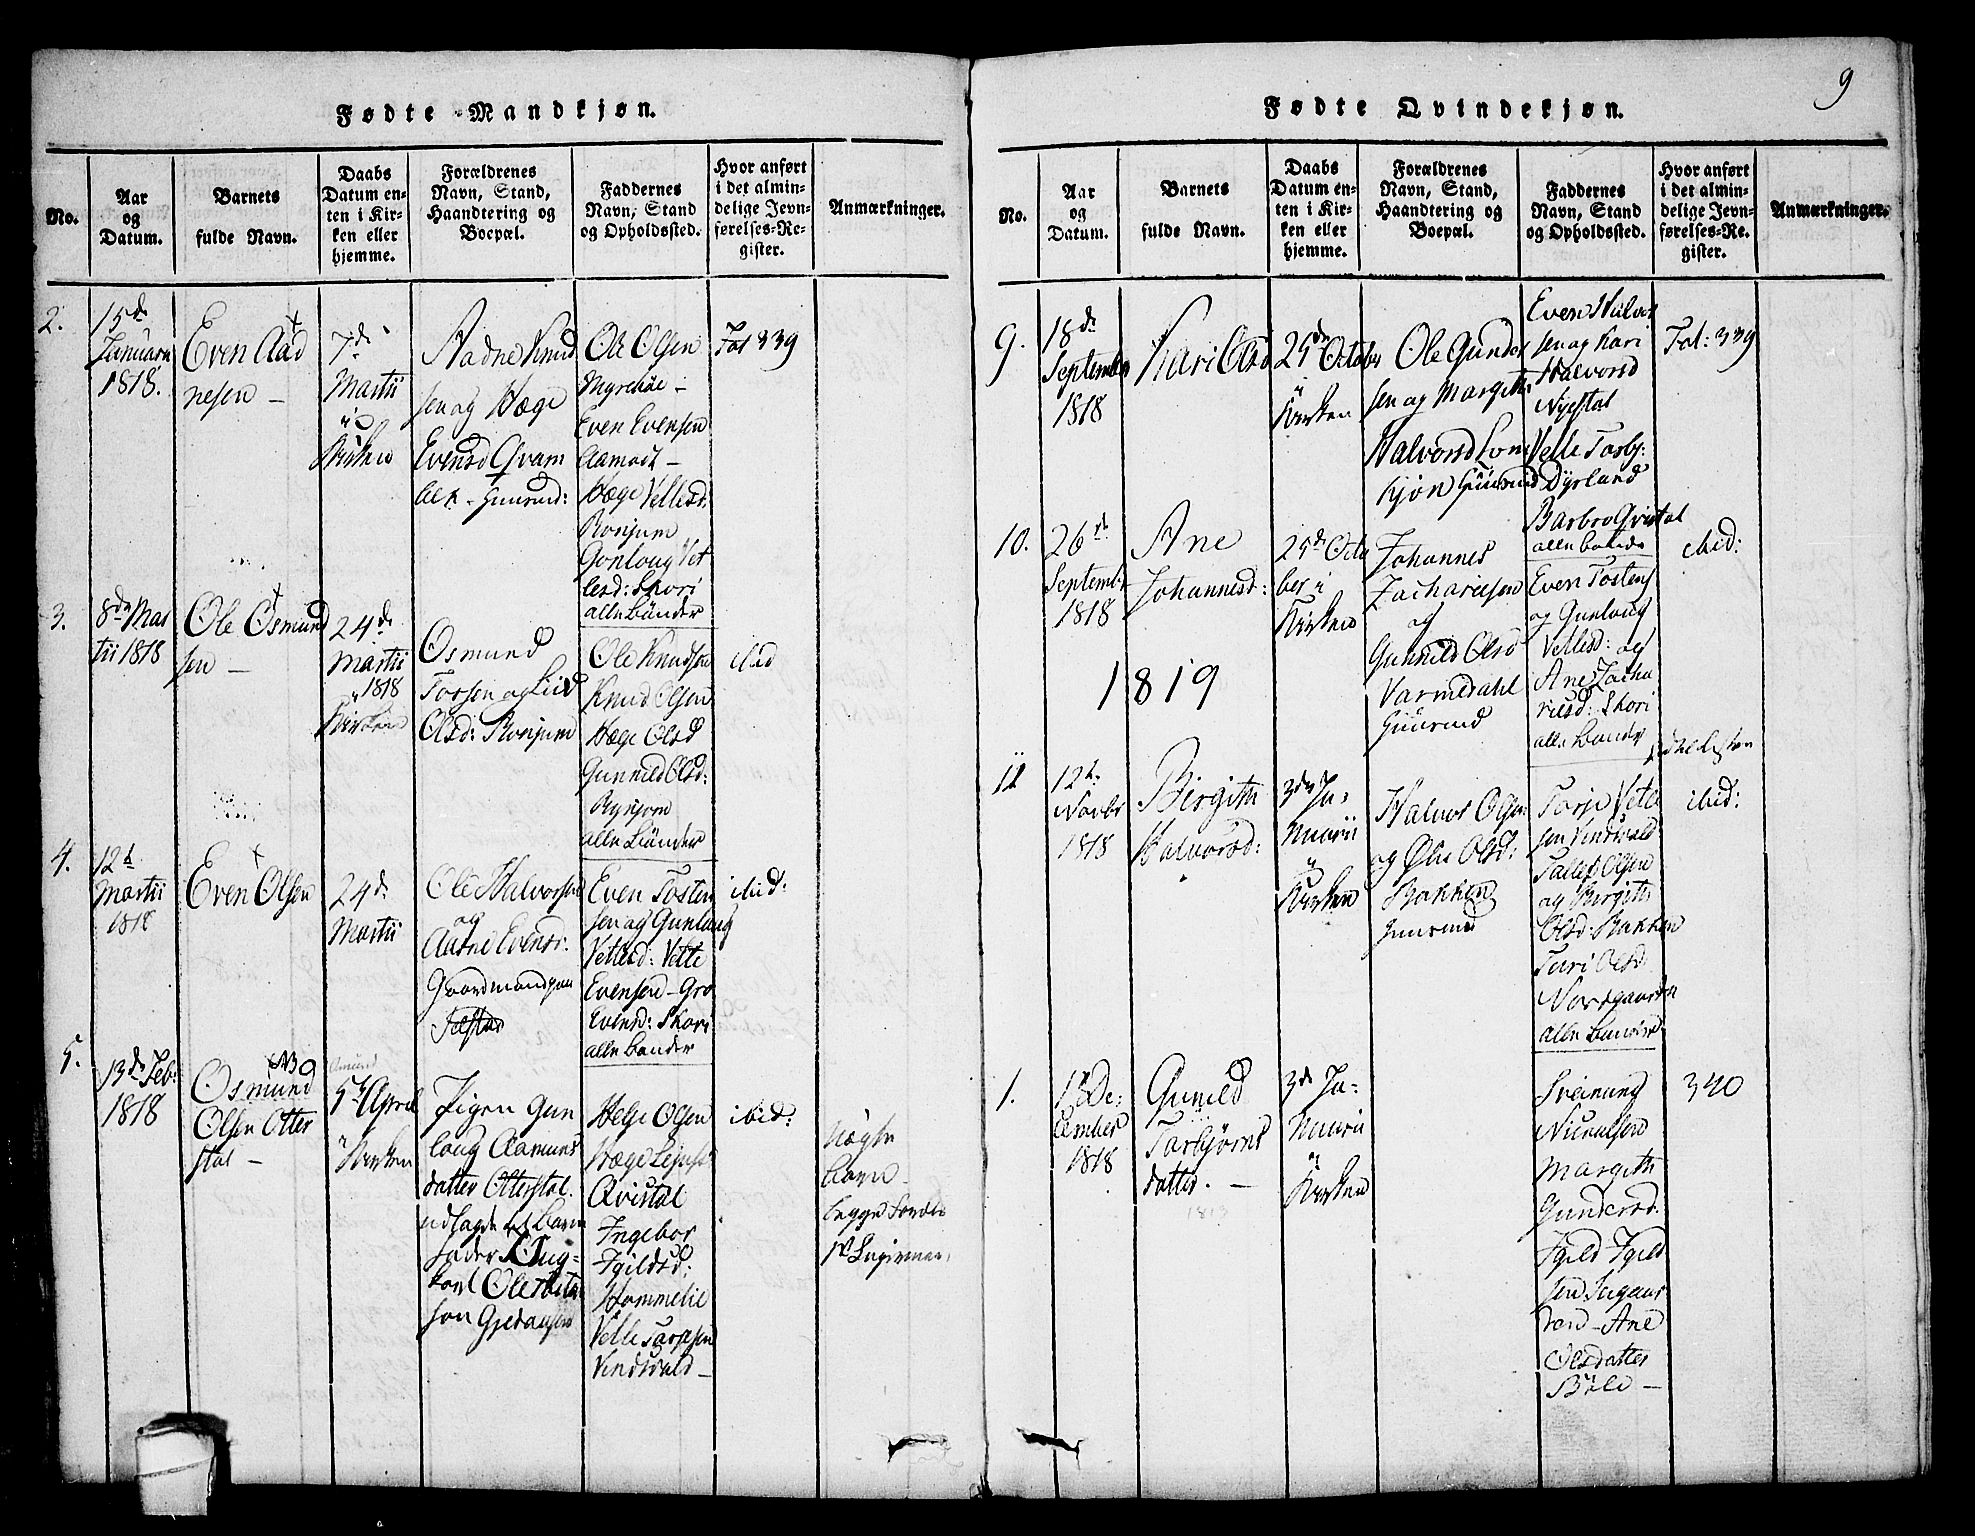 Fødte Mandkjøn.
No.
Aar
og
Datum.
Barnets
fulde Navn.
Daabs
Datum en-
ten i Kir-
ken eller
hjemme.
Forældrenes
Navn, Stand,
Haandtering og
Boepæl.
Faddernes
Navn, Stand
og Opholdssted.
Hvor anført
i det almin-
delige Jevn-
førelses-Re-
gister.
Anmærkninger.
2.
15de
Januarii
1818.
Even Aad
nesen —
7de
Martii
i
Kirken
Aadne Knud
sen og Hæge
Evensd Qvam
bek -
Ole Olsen
Myrebøe -
Even Evensen
Aamodt -
Hæge Vellesd:
Ronjum
Gonloug Vet
lesd: Skori
alle bønder
Fol 339
3.
8de Mar
tii 1818
Ole Osmund
sen —
24de
Martii
1818
i Kirken
Osmund
Torsen og Liv
Olsd: Ronjum
Ole Knudsen
Knud Olsen
Hæge Olsd
Gunnild Olsd:
Rysjom
alle bønder
ibid
4.
12te
Martii
1818
Even Olsen
24de
Martii
Ole Halvorsen
og
Aadne Evensd:
Even Tosten
sen og Gunloug
Vetlesd: Vetle
Evensen - Gro
Evensd: Skori
alle bønder
ibid:
5.
13de Feb:
1818
NB
Osmund
Olsen Otter
stal —
5te April
i Kirken
Pigen Gun
loug Aamunds
datter Otterstal.
udlagde til Barne
fader Ung-
karl Ole
Helge Olsen
Hæge
Qvistal
Ingebor
Igildsd:
Hommelie
Velle Tarjesen
Vindvald —
ibid:
Uægte
barn
begge
1te
Fødte Qvindekjøn.
9
No.
Aar
og
Datum.
Barnets
fulde Navn.
Daabs
Datum en-
ten i Kir-
ken eller
hjemme.
Forældrenes
Navn, Stand,
Haandtering og
Boepæl.
Faddernes
Navn, Stand
og Opholdssted.
Hvor anført
i det almin-
delige Jevn-
førelses-Re-
gister.
Anmærkninger.
9.
18de
September
1818
Kari Olsd
25de October
i
Kirken
Ole Gunder
sen og Margith
Halvorsd
Even Halvor
sen og Kari
Halvorsd
Nystal
Velle Torbj:
Dyrland
Barbro Qvistal
alle bønder
Fol: 339
10.
26de
September
1818
Ane
Johannesd:
25de Octo
ber i
Kirken
Johannes
Zachariesen
og
Gunnild Olsd
Varmedahl
Even Tostens
og Gunloug
Vellesd: og
Ane Zacha
riesd: Skori
alle bønder
ibid:
1819
11
12te
Novbr
1818
Birgith
Halvorsd:
3de Ja-
nuarii
i
Kirken
Halvor Olsen
og Olsd:
Bakken
Tarje Vetle
sen Vindvald
Tallef Olsen
og Birgith
Olsd: Bakken
Turi Olsd:
Nordgaarden
alle bønder
ibid:
1.
De-
cember
1818
Gunild
Tarbjørns
datter. —
3de Ja-
nuarii
i
Kirken
Sveinung
Nicaulsen
Margith
Gundersd:
Igild Igild
sen
Ane
Olsdatter
Bøle —
340